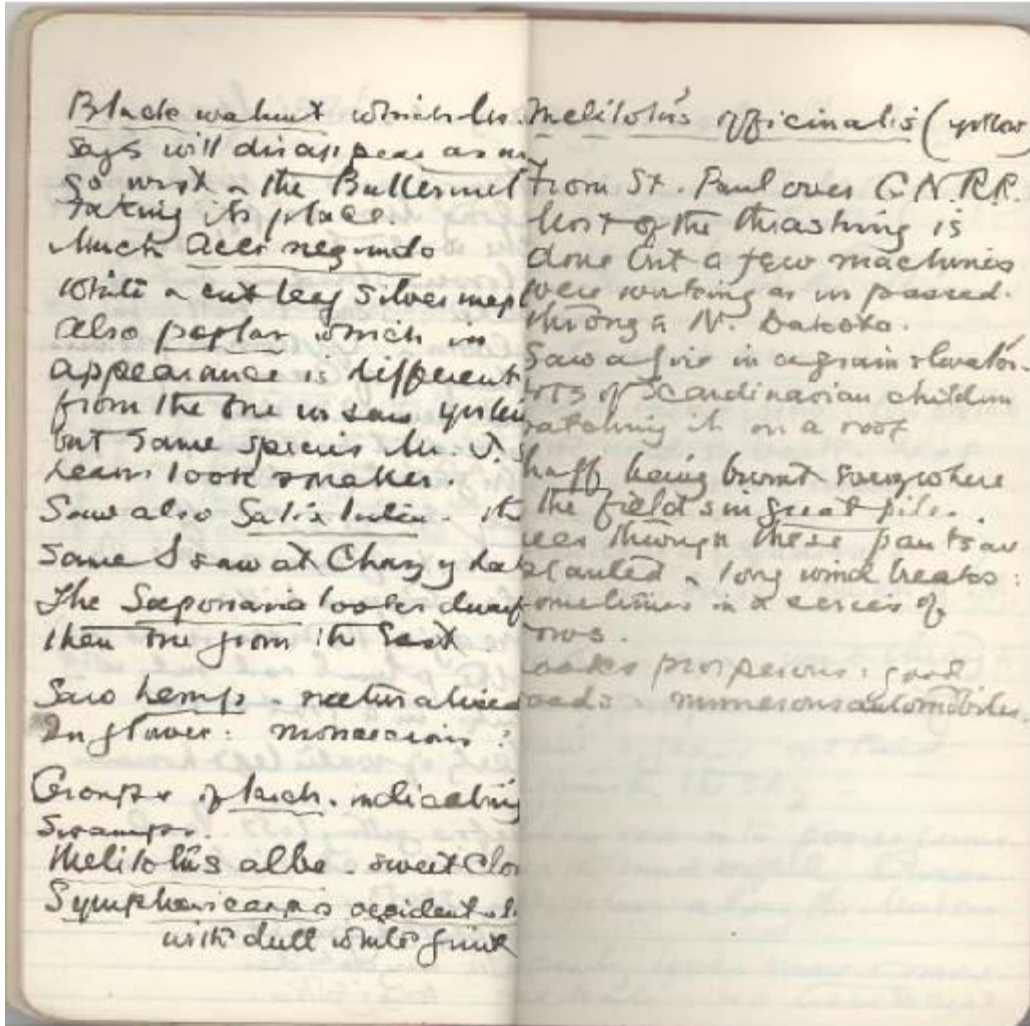 Black walnut which
says will disappear as
go west & the Butternut
taking its place.
Much Acer negundo
White & cut leaf silver mapl
also poplar which in
appearance is different
from the one we saw
but same species Mr. J.
leaves look smaller.
Saw also Salix lutea. the
same I saw at Chazy
The Saponaria looks
than one from the East
Saw hemp. naturalized
In flower: monoecious?
Groups of larch. indicating
swamps.
Melilotus alba. sweet Clo
Symphoricarpos occidental
with dull white fruit
Melilotus officinalis (yellow
From St. Paul over G.N.R.R.
Most of the thrashing is
done but a few machines
were working as we passed.
through N. Dakota.
Saw a fire in a grain elevator.
ots of Scandinavian children
atching it on a roof
haff being burnt everywhere
the fields in great piles.
ees through these parts are
planted in long wind breaks:
ometimes in a series of
ows.
ooks prosperous: good
oads. numerous automobiles.